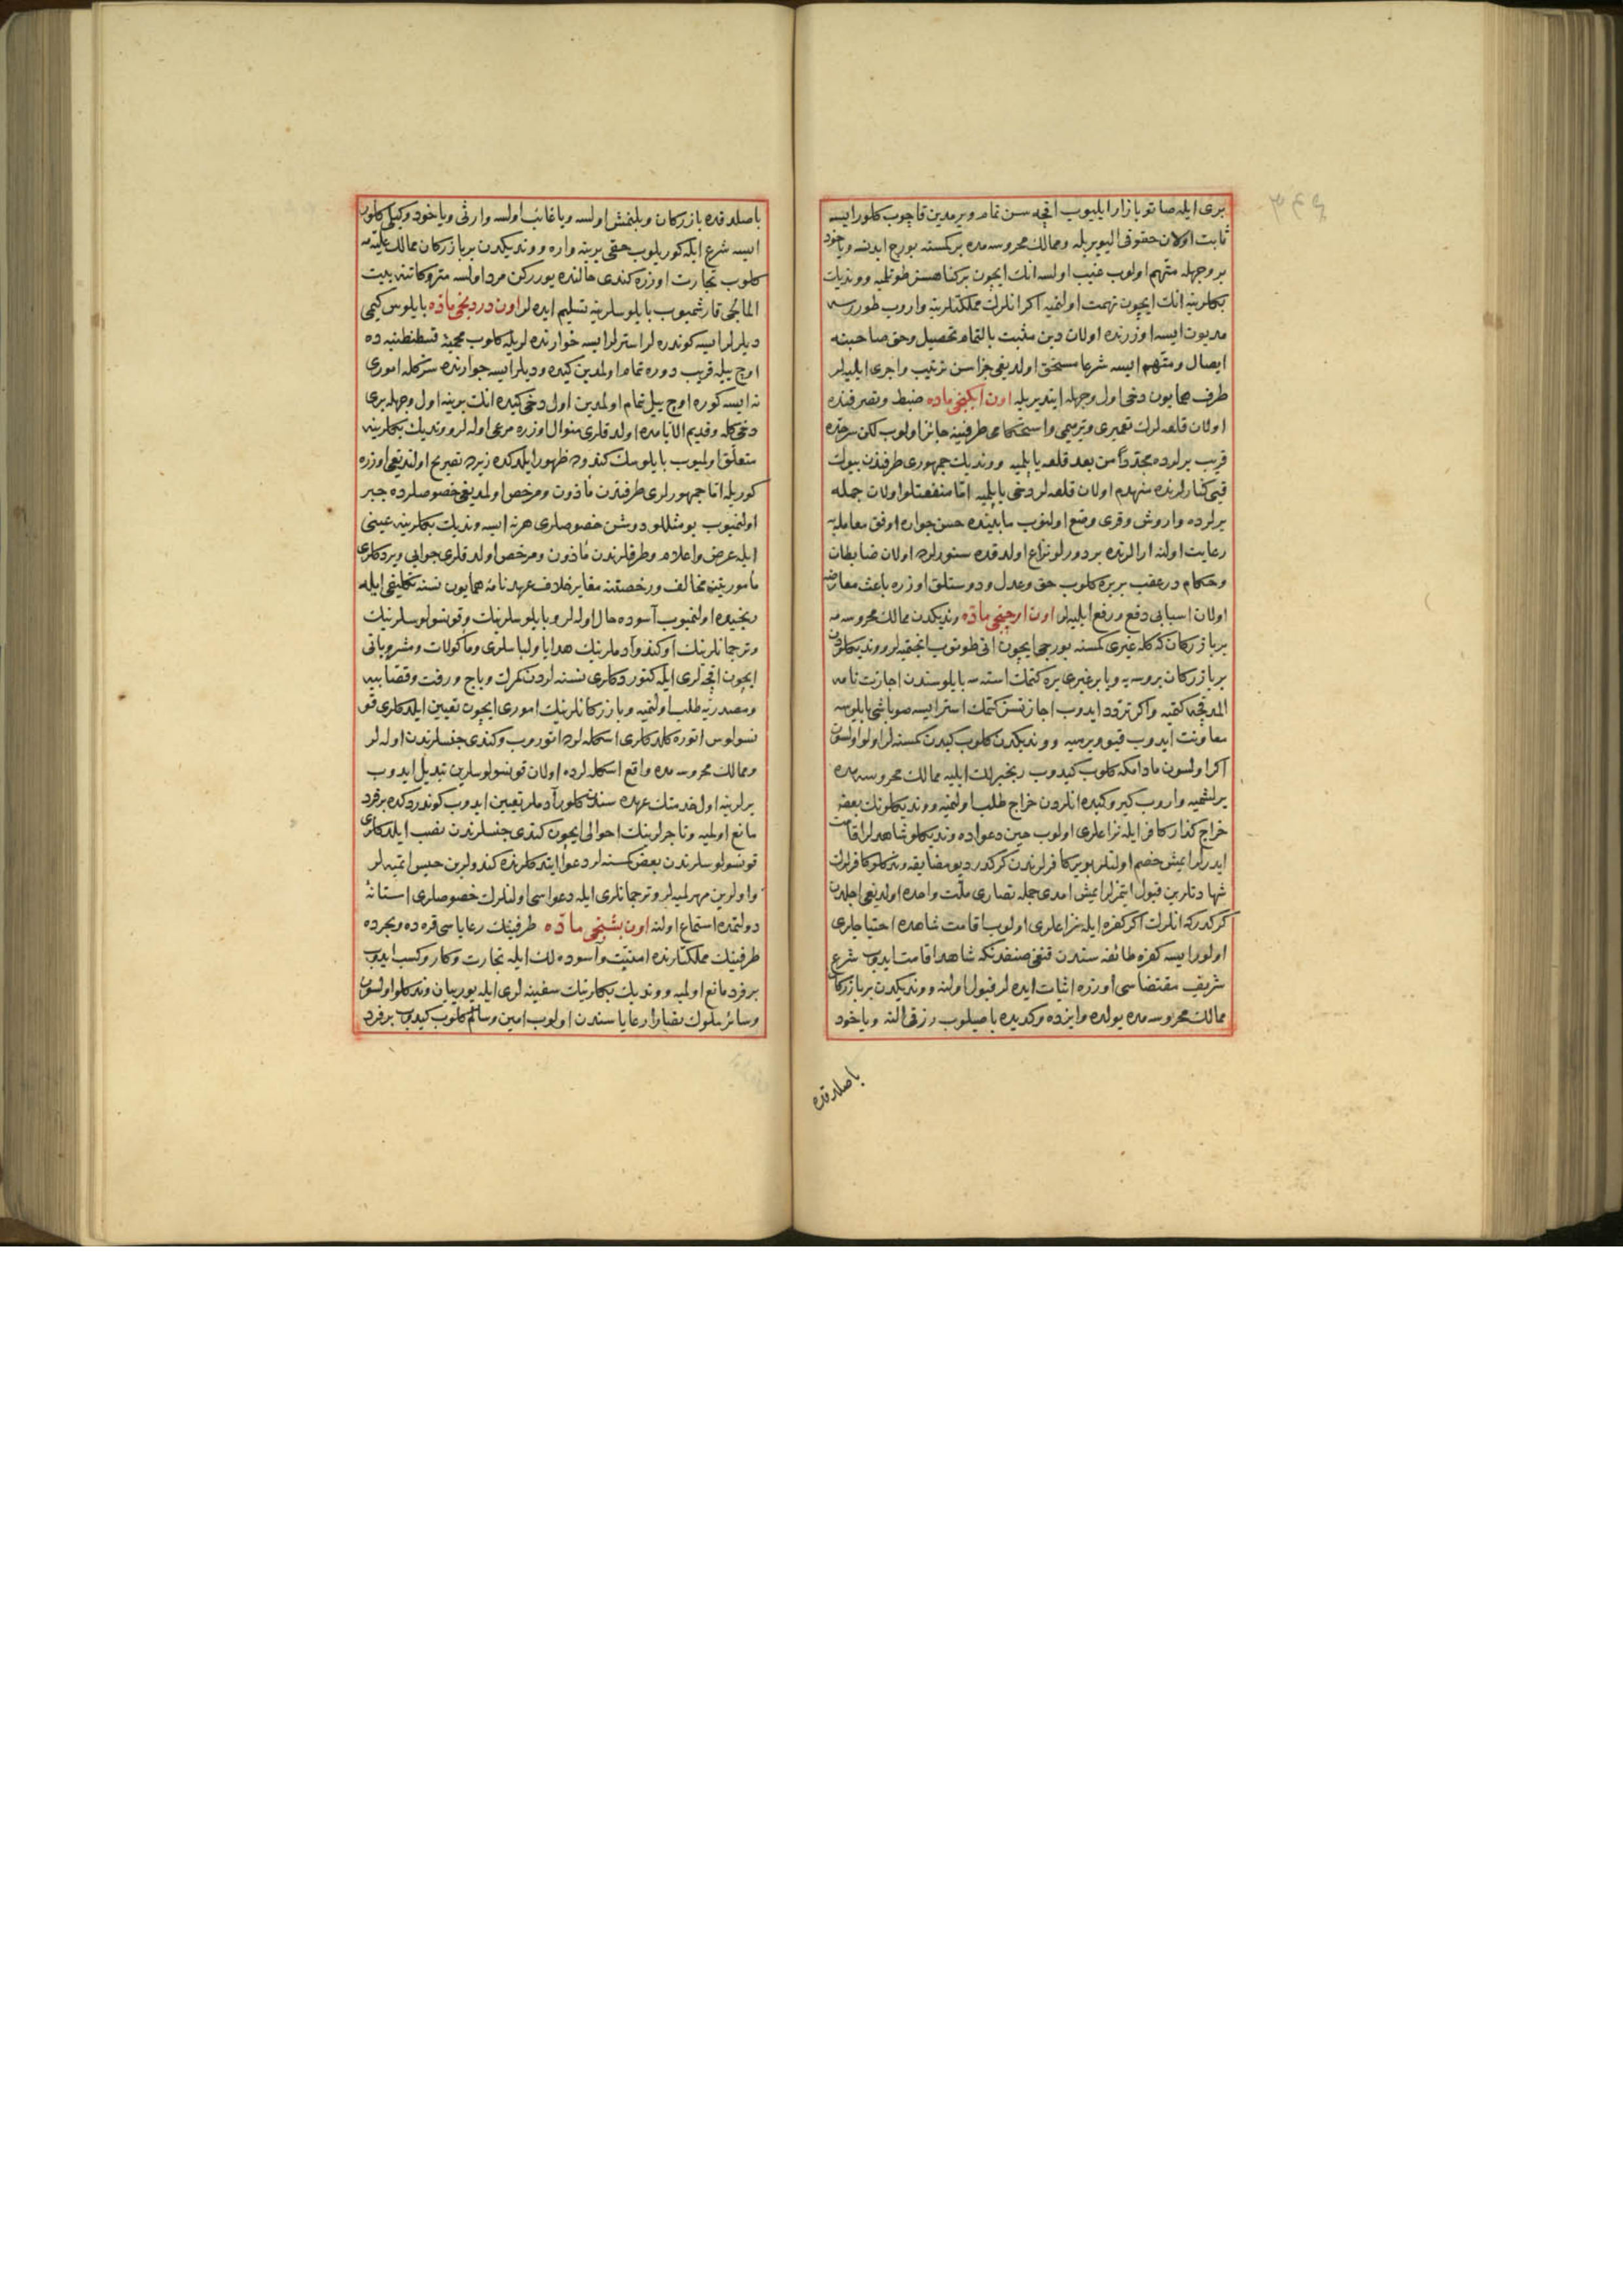 بری ایله صاتو بازار ایلیوب اقچه سن تمام ویرمدین قاچوب کلور ایسه
ثابت اولان حقوقی الیویریله وممالك محروسه مده بر کمسنه بورج ایدنسه ویاخود
بر وجهله متهم اولوب غیب اولسه انك ایچون بر کناهسز طوتلمیه ووندیك
بکلرینه انك ایچون تهمت اولنمیه اکر انلرك مملکتلرینه واروب طورورسه
مدیون ایسه اوزرنده اولان دین مثبت بالتمام تحصیل وحق صاحبنه
ایصال ومتهم ایسه شرعا مستحق اولدیغی جزاسن ترتیب واجری ایلیه لر
طرف همایون دخی اول وجهله ایتدیریله اون ایکنجی ماده ضبط وتصرفنده
اولان قلعه لرك تعمیری وترمیمی واستحکامی طرفینه جائز اولوب لکن سرحده
قریب یرلرده مجددا من بعد قلعه یاپلمیه ووندیك جمهوری طرفندن بیوك
قیی کنارلرنده منهدم اولان قلعه لر دخی یاپلمیه اما منفعتلو اولان جمله
یرلرده واروش وقری وضع اولنوب مابینده حسن جواره اوفق معامله یه
رعایت اولنه ارالرنده بر دورلو نزاع اولدقده سنورلرده اولان ضابطان
وحکام در عقب بریره کلوب حق وعدل ودوستلق اوزره باعث معارضه
اولان اسبابی دفع ورفع ایلیه لر اون اوچنجی ماده وندیکدن ممالك محروسه مه
بر بازرکان که کله غیری کمسنه بورجی ایچون انی طوتوب انجتمیه لر ووندیکلودن
بر بازرکان بروسه یه ویا بر غیری یره کتمك استه سه بایلوسندن اجازت نامه
المدقجه کتمیه واکر تردد ایدوب اجازتسز کتمك استر ایسه صوباشی بایلوسه
معاونت ایدوب قیویرمیه ووندیکدن کلوب کیدن کمسنه لر اولو اولسون
اکر اولسون مادامکه کلوب کیدوب رنجبرلك ایلیه ممالك محروسه مده
یرلشمیه واروب کیرو کیده انلردن خراج طلب اولنمیه ووندیکلونك بعض
خراج کذار کافر ایله نزاعلری اولوب حین دعواده وندیکلو شاهدلر اقامت
ایدرلر ایمش خصم اولنلر بو یر کافرلرندن کرکدر دیو مضایقه وندیکلو کافرلرك
شهادتلرین قبول ایتمزلر ایمش امدی جمله نصاری ملت واحده اولدیغی اجلدن
کرکدرکه انلرك اکر کفره ایله نزاعلری اولوب اقامت شاهده احتیاجلری
اولور ایسه کفره طائفه سندن قنغی صنفدنکه شاهد اقامت ایدوب شرع
شریف مقتضاسی اوزره اثبات ایده لر قبول اولنه ووندیکدن بر بازرکان
ممالك محروسه مده یولده وایزده وکدیده باصیلوب رزقی النه ویاخود
باصلدقده
باصلدقده بازرکان ویلنمش اولسه ویا غائب اولسه وارثی ویاخود وکیلی کلور
ایسه شرع ایله کوریلوب حقی یرینه واره ووندیکدن بر بازرکان ممالك علیه مه
کلوب تجارت اوزره کندی حالنده یوررکن مرد اولسه متروکاتنه بیت
المالجی قارشمیوب بایلوسلرینه تسلیم ایده لر اون دردنجی ماده بایلوس کیمی
دیلرلر ایسه کوندره لر استرلر ایسه خوارنده لریله کلوب محمیه قسطنطنیه ده
اوچ ییله قریب دوره تمام اولمدین کیده ودیلر ایسه جوارنده سزکله اموری
نه ایسه کوره اوچ ییل تمام اولمدین اول دخی کیده انك یرینه اول وجهله بری
دخی کله وقدیم الایامده اولدقلری منوال اوزره مرعی اوله لر ووندیك بکلرینه
متعلق اولمیوب بایلوسك کندوه ظهور ایلدکده زیرده تصریح اولندیغی اوزره
کوریله اما جمهورلری طرفندن مأذون ومرخص اولمدیغی خصوصلرده جبر
اولنمیوب بومثللو دوشن خصوصلری هر نه ایسه وندیك بکلرینه عینی
ایله عرض واعلام وطرفلرندن مأذون ومرخص اولدقلری جوابی ویردکلری
مأموریتنه مخالف ورخصتنه مغایر خلاف عهدنامه همایون نسنه تکلیفی ایله
رنجیده اولنمیوب آسوده حال اوله لر وبایلوسلرینك وقونسولوسلرینك
وترجمانلرینك وکندو آدملرینك هدایا ولباسلری ومأکولات ومشروباتی
ایچون اقچه لری ایله کتوردکلری نسنه لردن کمرك وباج ورفت وقصابیه
ومصدریه طلب اولنمیه وبازرکانلرینك اموری ایچون تعیین ایلدکلری قو
نسولوس اتوره کلدکلری اسکله لرده اتوروب وکندی جنسلرندن اوله لر
وممالك محروسه مده واقع اسکله لرده اولان قونسولوسلرین تبدیل ایدوب
یرلرینه اول خدمتك عهده سندن کلور آدملر تعیین ایدوب کوندردکده بر فرد
مانع اولمیه وتاجرلرینك احوالی ایچون کندی جنسلرندن نصب ایلدکلری
قونسولوسلرندن بعض کمسنه لر دعوا ایتدکلرنده کندولرین حبس ایتمیه لر
واولرین مهرلمیه لر وترجمانلری ایله دعواسی اولنلرك خصوصلری استانه
دولتمده استماع اولنه اون بشنجی ماده طرفینك رعایاسی قره ده وبحرده
طرفینك مملکتلرنده امنیت وآسوده لك ایله تجارت وکار وکسب ایدوب
بر فرد مانع اولمیه ووندیك بکلرینك سفینه لری ایله یوریان وندیکلو اولسون
وسائر ملوك نصارا رعایاسندن اولوب امین وسالم کلوب کیدوب بر فرد